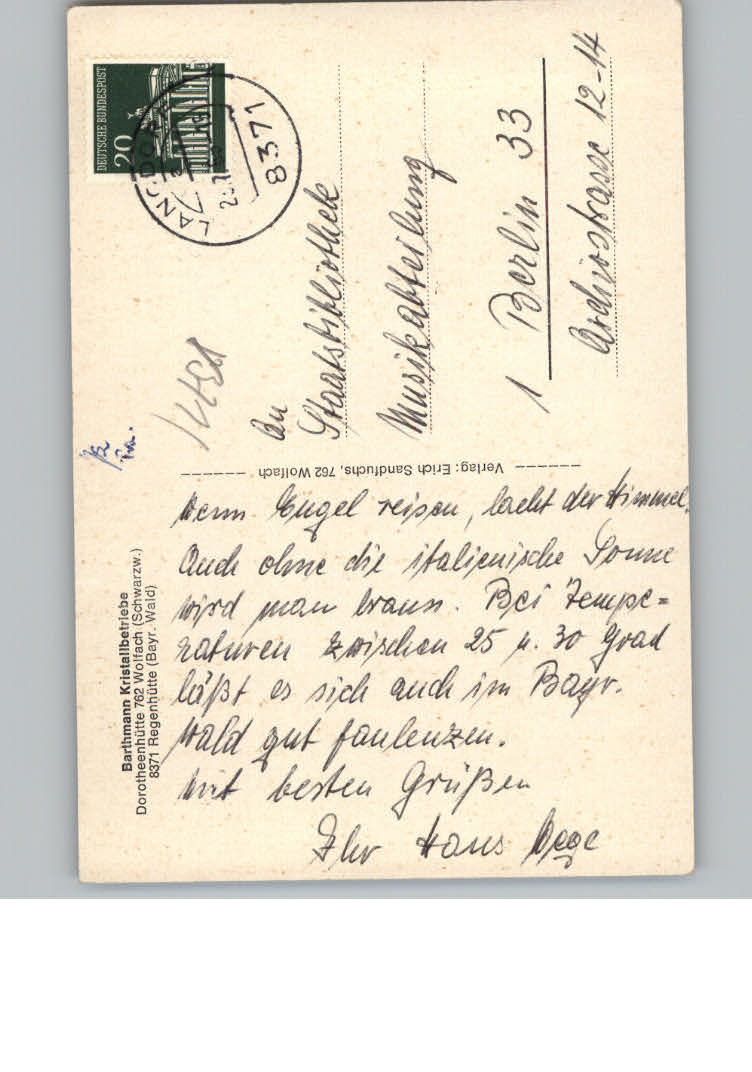 Barthmann Kristallbetriebe
Dorotheenhütte 762 Wolfach (Schwarzw.)
8371 Regenhütte (Bayr. Wald)
Wenn Engel reisen, lacht der Himmel.
Auch ohne die italienische Sonne
wird man braun. Bei Tempe=
raturen zwischen 25 u. 30 Grad
läßt es sich auch im Bayr.
Wald gut faulenzen.
Mit besten Grüßen
Ihr Hans
Verlag: Erich Sandfuchs, 762 Wolfach
DEUTSCHE BUNDESPOST
20
LANGDORF
8371
An
Staatsbibliothek
Musikabteilung
1 Berlin 33
Archivstrasse 12-14